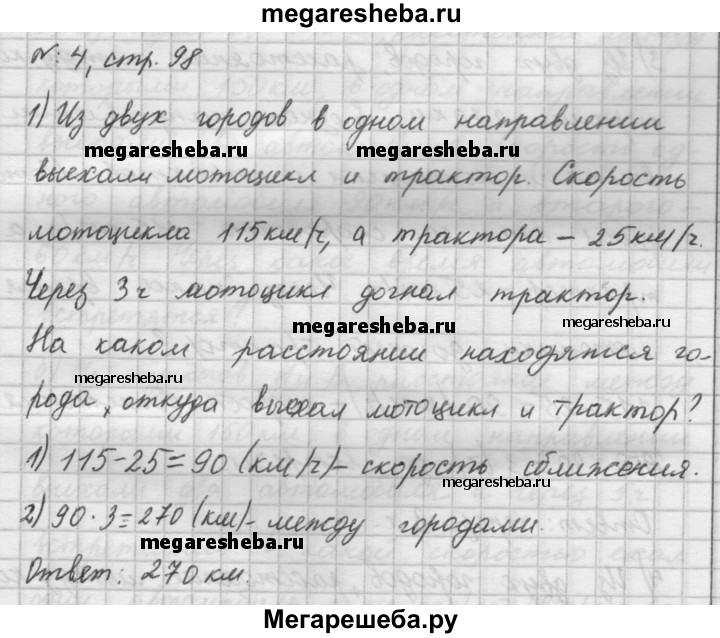 megaresheba.ru
№ 4, стр. 98
1) Из двух городов в одном направлении
megaresheba.ru megaresheba.ru
выехали мотоцикл и трактор. Скорость
мотоцикла 115 км/ч, а трактора – 25 км/ч.
Через 3 ч мотоцикл догнал трактор.
megaresheba.ru megaresheba.ru
На каком расстоянии находятся го-
megaresheba.ru
рода, откуда выехал мотоцикл и трактор?
1) 115 – 25 = 90 (км/ч) – скорость сближения.
megaresheba.ru
2) 90 · 3 = 270 (км) – между городами.
megaresheba.ru
Ответ: 270 км.
Мегарешеба.ру